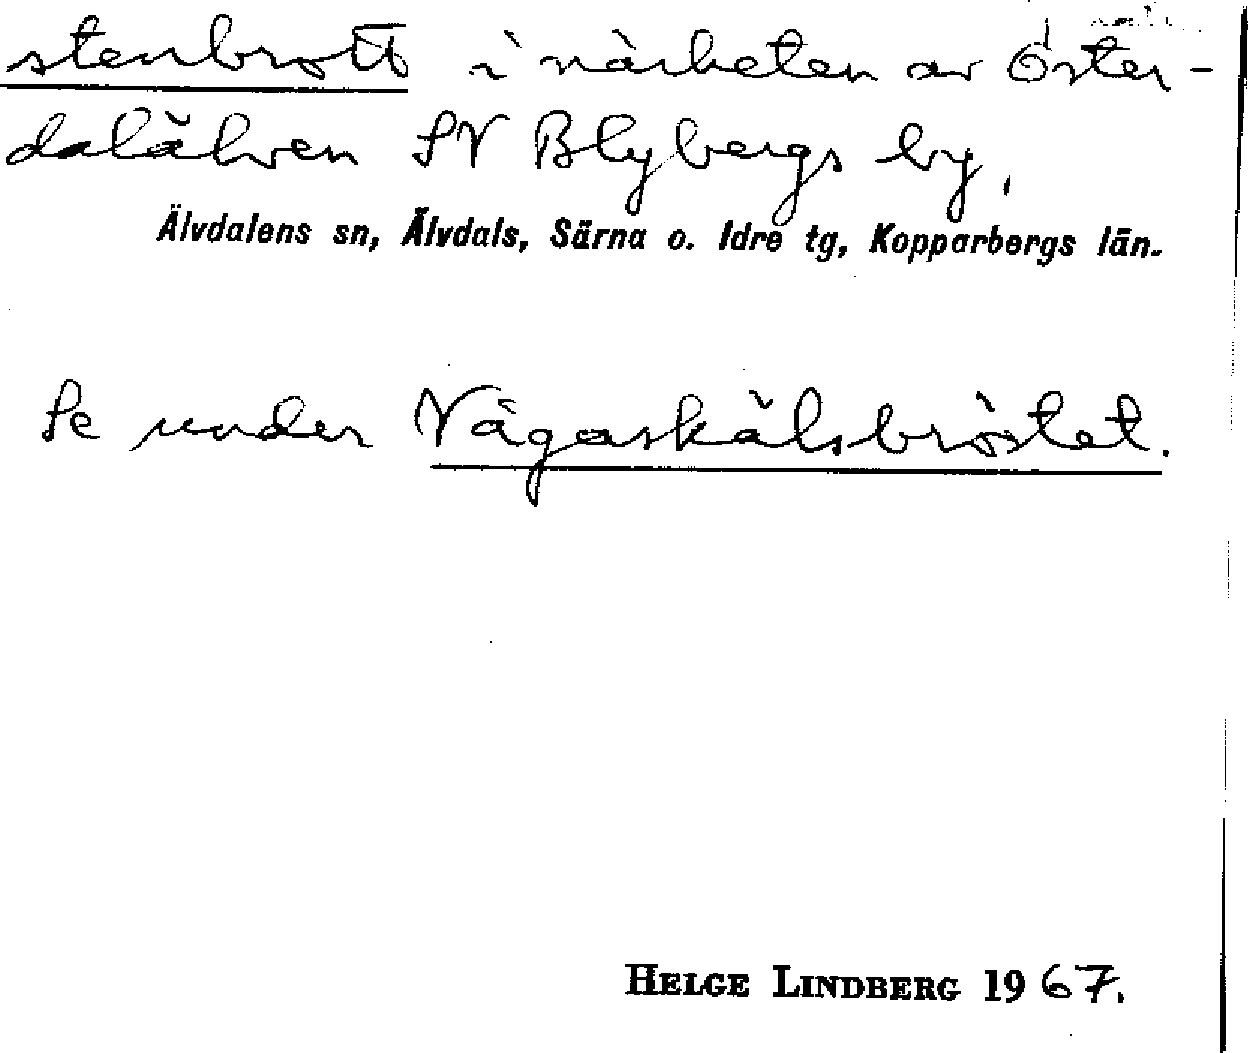 stenbrott i närheten av Öster-
dalälven SV Blybergs by.
Älvdalens sn, Älvdals, Särna o. Idre tg, Kopparbergs län.
Se under Vågaskälsbröstet.
HELGE LINDBERG 1967.